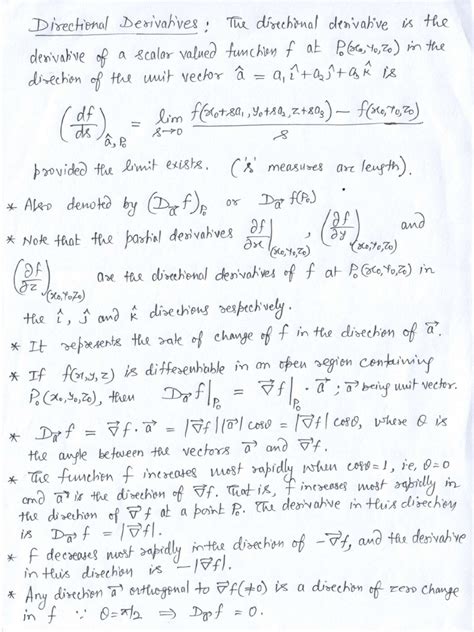 Directional Derivatives: The directional derivative is the
derivative of a scalar valued function f at P₀(x₀,y₀,z₀) in the
direction of the unit vector â = a₁î+a₂ĵ+a₃k̂ is
(df/ds)_{â,P₀} = lim_{s→0} (f(x₀+sa₁, y₀+sa₂, z+sa₃) − f(x₀,y₀,z₀))/s
provided the limit exists. ('s' measures arc length).
* Also denoted by (D_{a⃗} f)_{P₀} or D_{a⃗} f(P₀)
* Note that the partial derivatives ∂f/∂x|_{(x₀,y₀,z₀)}, (∂f/∂y)_{(x₀,y₀,z₀)} and
(∂f/∂z)_{(x₀,y₀,z₀)} are the directional derivatives of f at P₀(x₀,y₀,z₀) in
the î, ĵ and k̂ directions respectively.
* It represents the rate of change of f in the direction of a⃗.
* If f(x,y,z) is differentiable in an open region containing
P₀(x₀,y₀,z₀), then D_{a⃗} f|_{P₀} = ∇⃗f|_{P₀} · a⃗ ; a⃗ being unit vector.
* D_{a⃗} f = ∇⃗f · a⃗ = |∇⃗f||a⃗| cosθ = |∇⃗f| cosθ, where θ is
the angle between the vectors a⃗ and ∇⃗f.
* The function f increases most rapidly when cosθ=1, ie, θ=0
and a⃗ is the direction of ∇⃗f. That is, f increases most rapidly in
the direction of ∇⃗f at a point P₀. The derivative in this direction
is D_{a⃗} f = |∇⃗f|.
* f decreases most rapidly in the direction of −∇⃗f, and the derivative
in this direction is −|∇⃗f|.
* Any direction a⃗ orthogonal to ∇⃗f(≠0) is a direction of zero change
in f ∵ θ=π/2 ⇒ D_{a⃗} f = 0.